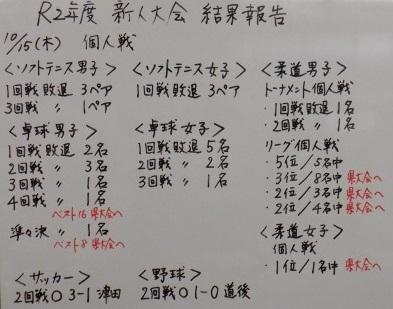 R2年度 新人大会 結果報告
10/15(木) 個人戦
<ソフトテニス男子>
1回戦敗退 3ペア
3回戦 〃 1ペア
<ソフトテニス女子>
1回戦敗退 3ペア
<柔道男子>
トーナメント個人戦
・1回戦敗退1名
・2回戦 〃 1名
リーグ個人戦
・5位/5名中
・3位/8名中 県大会へ
・2位/3名中 県大会へ
・2位/4名中 県大会へ
<卓球男子>
1回戦敗退 2名
2回戦 〃 3名
3回戦 〃 1名
4回戦 〃 1名
ベスト16 県大会へ
準々決 〃 1名
ベスト8 県大会へ
<卓球女子>
1回戦敗退 5名
2回戦 〃 2名
3回戦 〃 1名
<柔道女子>
個人戦
・1位/1名中 県大会へ
<サッカー>
2回戦○ 3-1 津田
<野球>
2回戦○ 1-0 道後